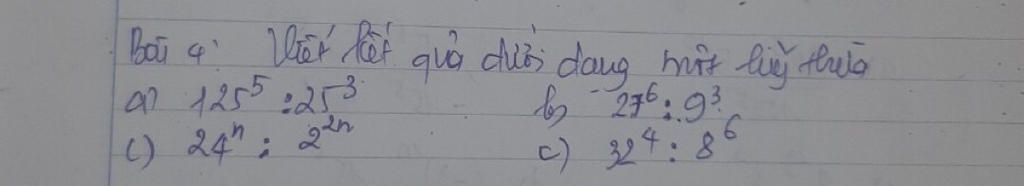 Bài 4: Viết kết quả dưới dạng một luỹ thừa
a) 125⁵ : 25³ b) 27⁶ : 9³
c) 24ⁿ : 2²ⁿ c) 32⁴ : 8⁶